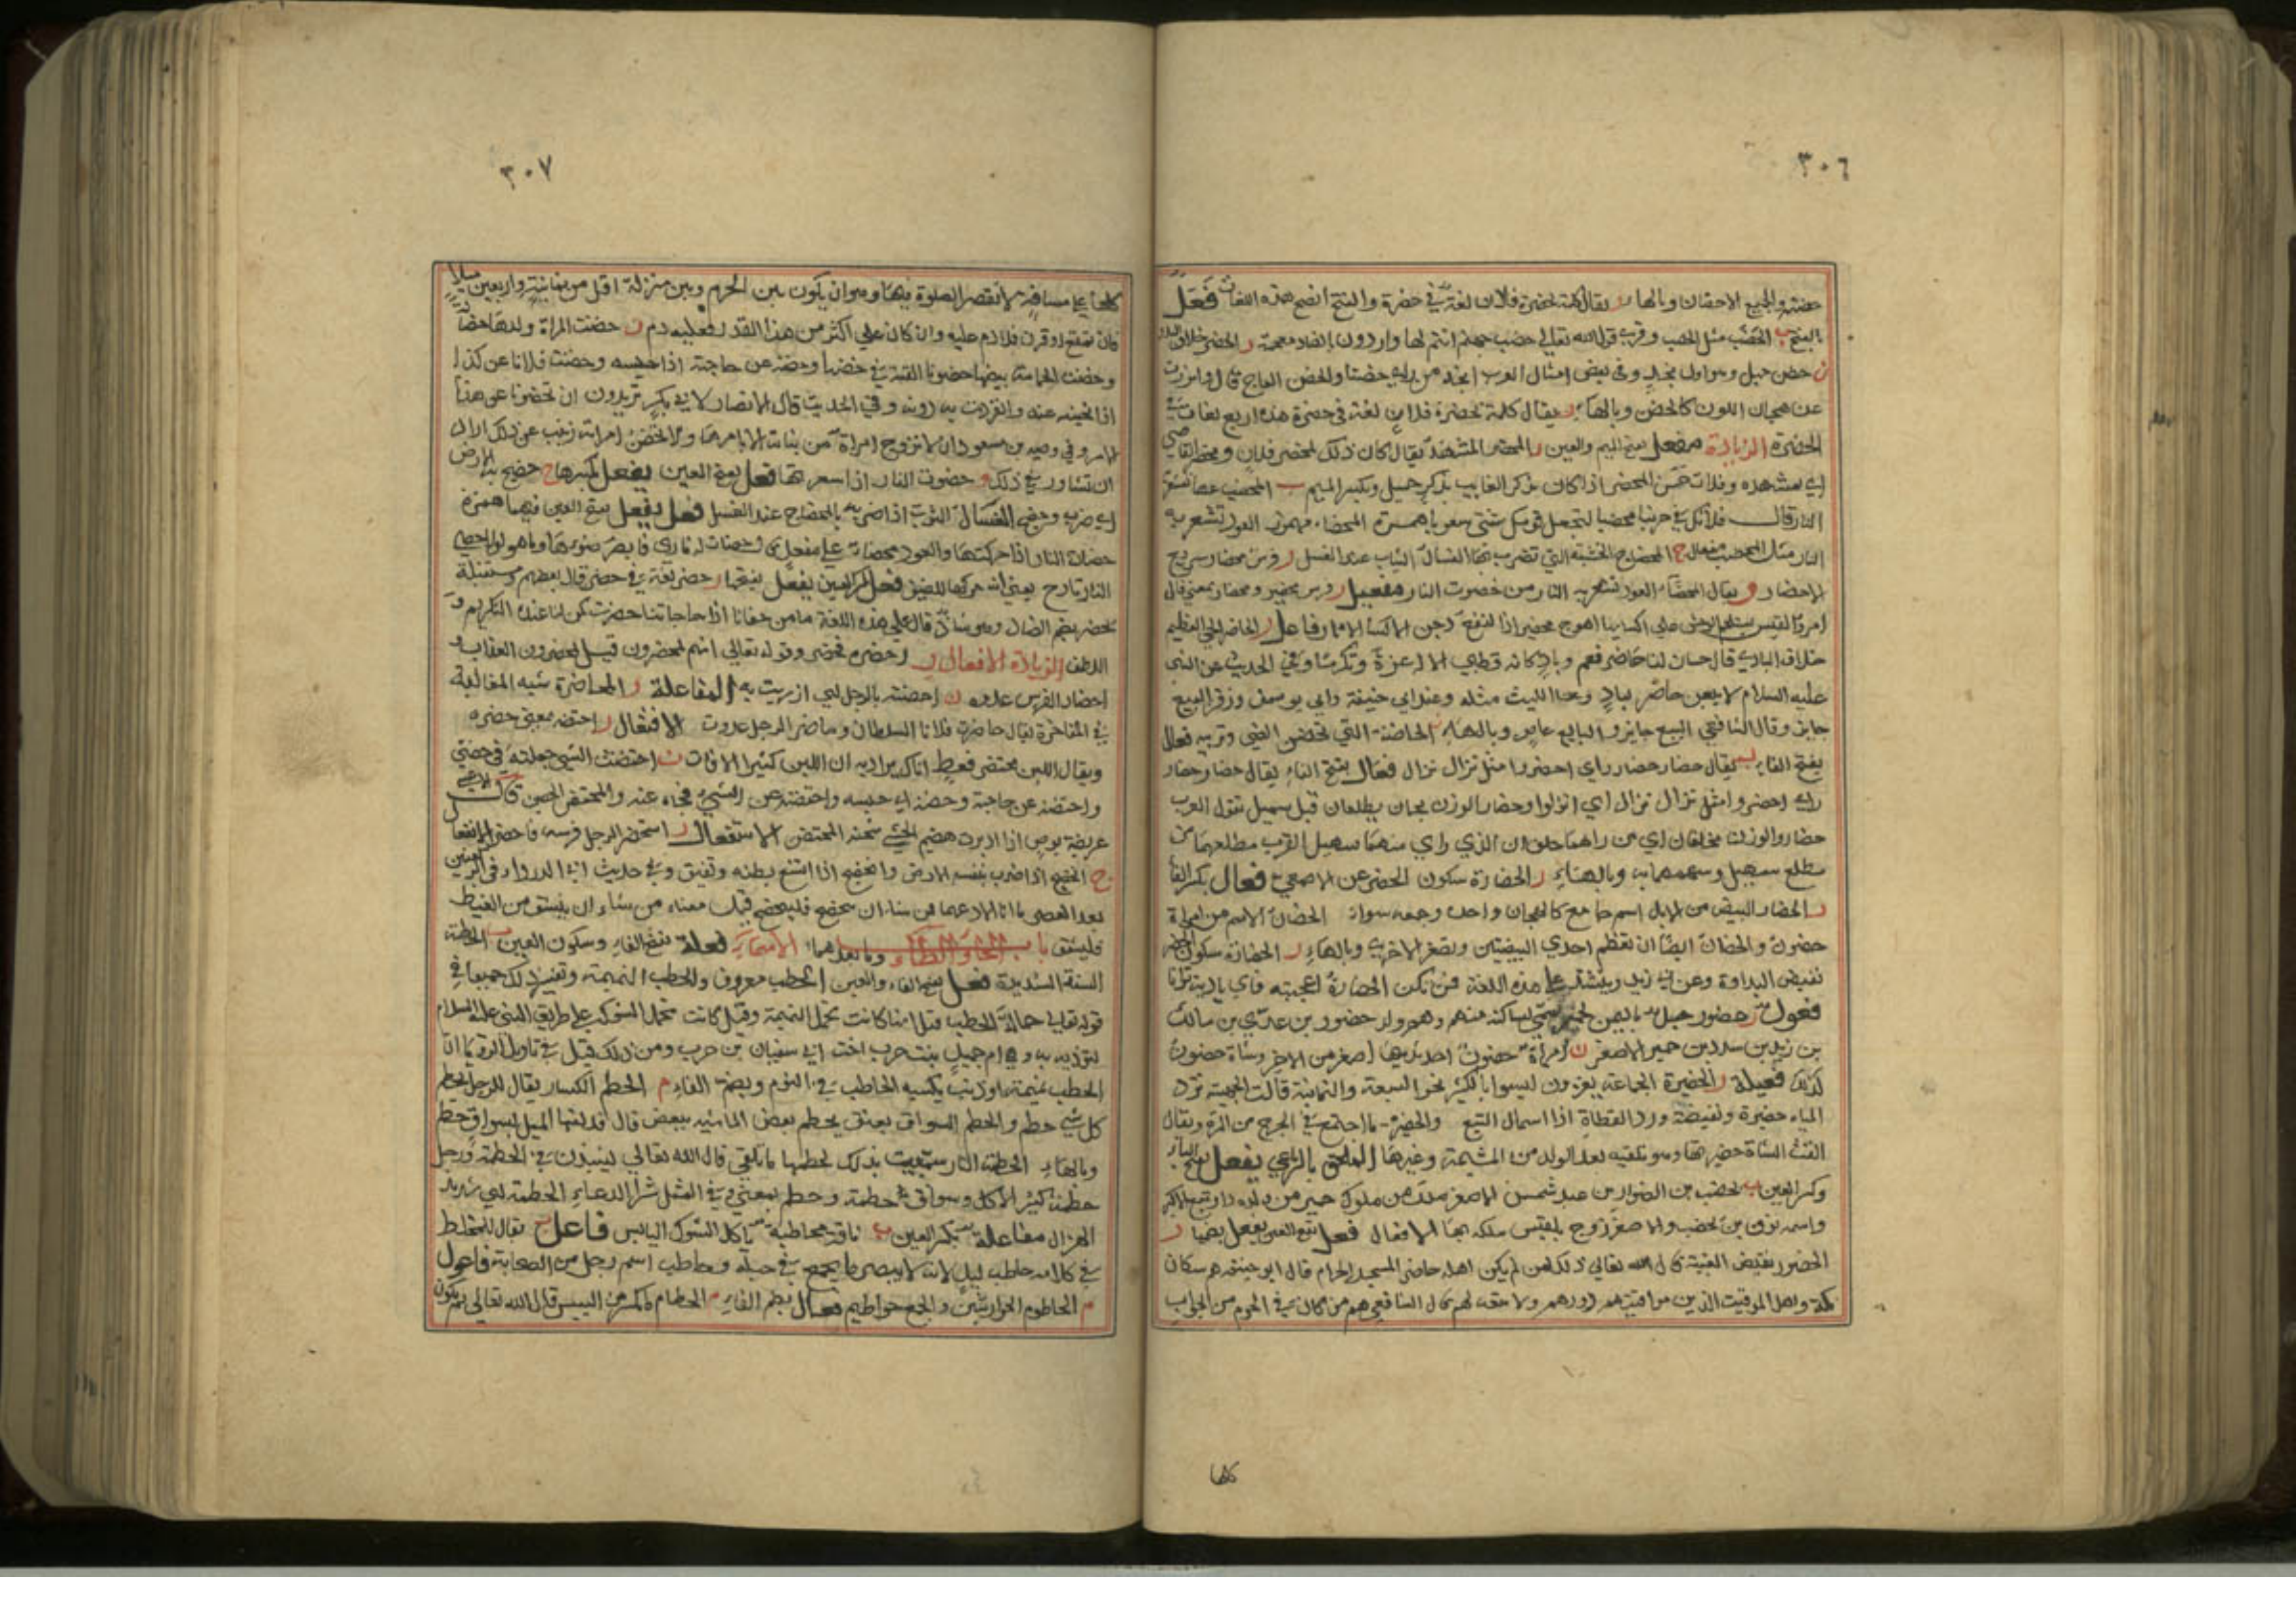 ٣٠٦
حضنه والجميع الاحضان وبالهاء ر يقال كلمته بحضرة فلان لغة في حضرة والفتح افصح هذه اللغات فَعَل
بالفتح ب الحَضَب مثل الحصب وقرئ قول الله تعالى حضب جهنم انتم لها واردون بالضاد معجمة ر الحضر خلاف البدو
ن حضن جبل وهو اول نجد وفي بعض امثال العرب انجد من راى حضنا والحضن العاج قال
عن هجان اللون كالحضن وبالهاء ر يقال كلمته بحضرة فلان لغة في حضرة هذه اربع لغات في
الحضرة الزيادة مفعل بفتح الميم والعين ر المحضر المشهد يقال كان ذلك بمحضر فلان ومحضر القاضي
اي مشهده وفلان حسن المحضر اذا كان يذكر الغايب بذكر جميل وبكسر الميم ب المحضب عصا تسعر
النار قال فلا تك في حربنا محضبا لتجعل قومك شتى شعوبا همزة المحضاء مهموز العود تسعر به
النار مثل المحضب مفعال ج المحضاج الخشبة التي تضرب بها الغسال الثياب عند الغسل ر فرس محضار سريع
الاحضار و يقال المحضاء العود تسعر به النار من حضوت النار مفعيل ر فرس محضير ومحضار بمعنى قال
امرؤ القيس على اكسايها اهوج محضير اذا النقع دجن الاكساء فاعل ر الحاضر الحي العظيم
خلاف البادي قال حسان لنا حاضر فعم وباد كانه قطين الاله عزة وتكرما وفي الحديث عن النبي
عليه السلام لا يبعن حاضر لباد الليث مثله وعند ابي حنيفة وابي يوسف وزفر البيع
جايز وقال الشافعي البيع جايز و البايع عاص وبالهاء ن الحاضنة التي تحضن الصبي وتربيه فعال
بفتح الفاء ر يقال حضار حضار راي احضروا مثل نزال نزال فعال بفتح الفاء يقال حضار حضار
راي احضروا مثل نزال نزال اي انزلوا وحضار والوزن نجمان يطلعان قبل سهيل تقول العرب
حضار والوزن محلفان اي من راهما حلف ان الذي راى منهما سهيل لقرب مطلعهما من
مطلع سهيل وبالهاء ر الحضارة سكون الحضر عن الاصمعي فعال بكسر الفاء
ر الحضار البيض من الابل اسم جامع كالهجان واحده وجمعه سواء ن الحضان الاسم من امراة
حضون والحضان ايضا ان تعظم احدى البيضتين وتصغر الاخرى وبالهاء ر الحضارة سكون الحضر
نقيض البداوة وعن ابي زيد وينشد على هذه اللغة فمن تكن الحضارة اعجبته فاي بادية ترانا
فعول ر حضور جبل باليمن لحمير سمي بساكنه منهم وهو ولد حضور بن عدي بن مالك
بن زيد بن سدد بن حمير الاصغر ن امراة حضون احد ثدييها اصغر من الاخر وشاة حضون
كذلك فعيلة ر الحضيرة الجماعة يغزون ليسوا بالكثير نحو السبعة والثمانية قالت الجهنية ترد
المياه حضيرة ونفيضة ورد القطاة اذا اسمال التبع والحضيرة ما اجتمع في الجرح من المدة ويقال
القت الشاة حضيرتها وهو ما تلقيه بعد الولد من المشيمة وغيرها الملحق بالرباعي يفعل بفتح الياء
وكسر العين ب يحضب بن الصوار بن عبد شمس الاصغر ملك من ملوك حمير من ولده ذو تبع الاكبر
واسمه نوف بن يحضب والاصغر زوج بلقيس ملكه ابها الافعال فعل بفتح العين يفعل بضمها ر
الحضور نقيض الغيبة قال الله تعالى ذلك لمن لم يكن اهله حاضري المسجد الحرام قال ابو حنيفة هم سكان
مكة واهل المواقيت الذين مواقيتهم دورهم ولا متعة لهم قال الشافعي هم من كان في الحرم من الجوانب
كلها
٣٠٧
كلها على مسافة لا تقصر الصلوة فيها وهو ان يكون بين الحرم وبين منزله اقل من ثمانية واربعين ميلا
فان تمتع او قرن فلا دم عليه وان كان على اكثر من هذا القدر فعليه دم ن حضنت المراة ولدها حضانة
وحضنت الحمامة بيضها حضونا القته في حضنها وحضنه عن حاجته اذا حبسه وحضنت فلانا عن كذا
اذا نحيته عنه وانفردت به دونه وفي الحديث قال الانصار لابي بكر تريدون ان تحضنونا عن هذا
الامر وفي وصية بن مسعود ان لا تزوج امراة من بناته الا بامرهما ولا تحضن امراته زينب عن ذلك اراد
ان تشاور في ذلك و حضوت النار اذا سعرتها فعل بفتح العين يفعل بكسرها ج حضج به الارض
اي ضربه وحضج الغسال الثوب اذا ضربه بالمحضاج عند الغسل فعل يفعل بفتح العين فيهما همزة
حضات النار اذا حركتها والعود محضاء على مفعل
النار تادح فعل بكسر العين يفعل بفتحها ر حضر لغة في حضر قال بعضهم ومستقبله
يحضر بضم الضاد وهو شاذ قال على هذه اللغة ما من جفانا اذا حاجاتنا حضرت كمن لنا عنده التكريم و
اللطف الزيادة الافعال ر احضره فحضر وقوله تعالى انهم لمحضرون قيل لمحضرون العذاب و
احضار الفرس عدوه ن احضنت بالرجل اي ازريت به المفاعلة ر المحاضرة شبه المغالبة
في المفاخرة يقال حاضرت فلانا السلطان وحاضر الرجل عدوت الافتعال ر احتضره بمعنى حضره
ويقال اللبن محتضر فغط اناك يراد به ان اللبن كثير الافات ن احتضنت الشي جعلته في حضني
واحتضنه عن حاجته وحضنه اي حبسه واحتضنه عن الشي نجاه عنه والمحتضن الحضن قال الاعشى
عريضة بوص اذا ادبرت هضيم الحشى شختة المحتضن الاستفعال ر استحضر الرجل فرسه فاحضر الانفعال
ج انحضج اذا ضرب بنفسه الارض وانحضج اذا اتسع بطنه وتفتق وفي حديث ابي الدرداء في الركعتين
بعد العصر اما انا فلا ادعهما فمن شاء ان ينحضج فلينحضج قيل معناه من شاء ان ينشق من الغيظ
فلينشق باب الحاء والطاء وما بعدهما الاسماء فعلة بفتح الفاء وسكون العين ب الحطبة
السنة الشديدة فعل بفتح الفاء والعين الحطب معروف والحطب النميمة وتفسير ذلك جميعا في
قوله تعالى حمالة الحطب قيل انها كانت تحمل النميمة وقيل كانت تحمل الشوك على طريق النبي عليه السلام
لتؤذيه به وهي ام جميل بنت حرب اخت ابي سفيان بن حرب ومن ذلك قيل في تاويل الرؤيا ان
الحطب نميمة او ذنب يكتسبه الحاطب في النوم وبضم الفاء م الحطم الكسار يقال للرجل يحطم
كل شي حطم والحطم السواق بعنف يحطم بعض الماشية ببعض قال قد لفها الليل بسواق حطم
وبالهاء الحطمة النار سميت بذلك لحطمها ما تلقى قال الله تعالى لينبذن في الحطمة ورجل
حطمة كثير الاكل وسواق حطمة وحطم بمعنى وفي المثل شر الرعاء الحطمة اي شديد
الهزال مفاعلة بكسر العين ب ناقة محاطبة تاكل الشوك اليابس فاعل ب يقال للمخلط
في كلامه حاطب ليل لانه لا يبصر ما يجمع في حبله وحاطب اسم رجل من الصحابة فاعول
م الحاطوم الجوارشن والجمع حواطيم فعال بضم الفاء م الحطام ما تكسر من اليبيس قال الله تعالى ثم يكون